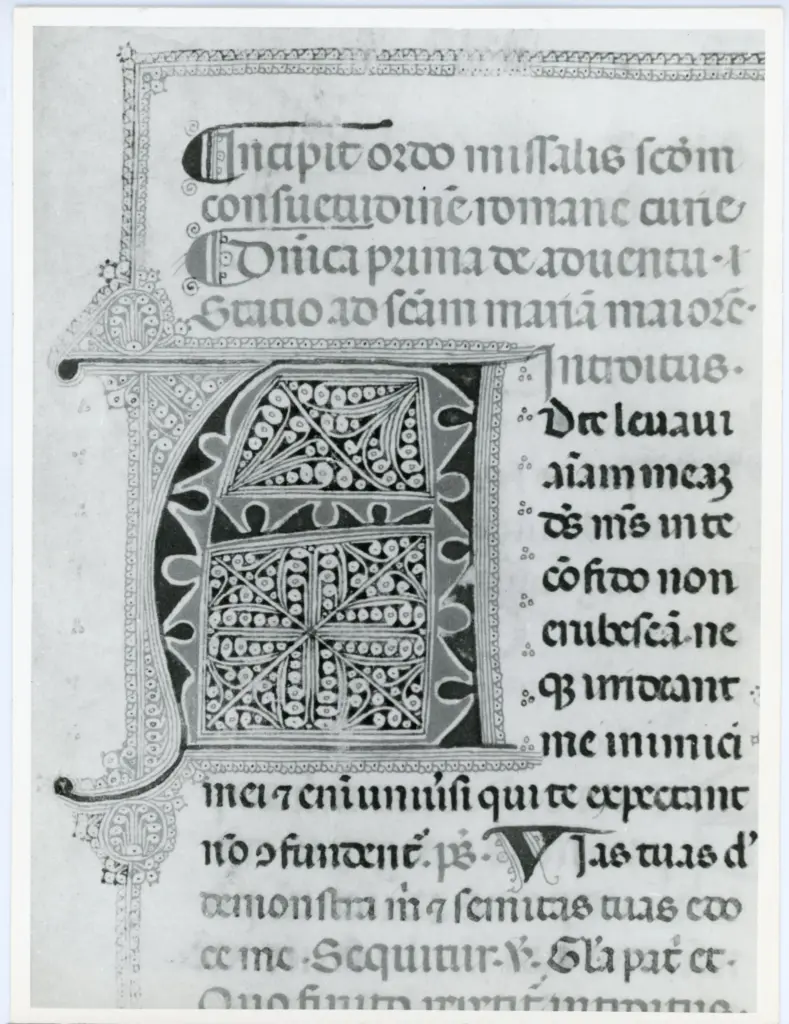 Incipit ordo missalis scd̄m
consuetudinē romane curie
Dn̄ica prima de aduentu ·
Statio ad scām mariā maiorē·
Introitus·
AD te leuaui
aīam meaꝫ
dꝰs mꝰs in te
cōfido non
erubescā· ne
qꝫ irrideant
me inimici
mei ⁊ eniʒ uniuʼsi qui te expectant
nō ↄfundentʼ. ps̄· Vias tuas dʼ
demonstra m̄ ⁊ semitas tuas edo
ce me · Sequitur· ℣· Gl̄a patʼ et·
Quo finito introitus·